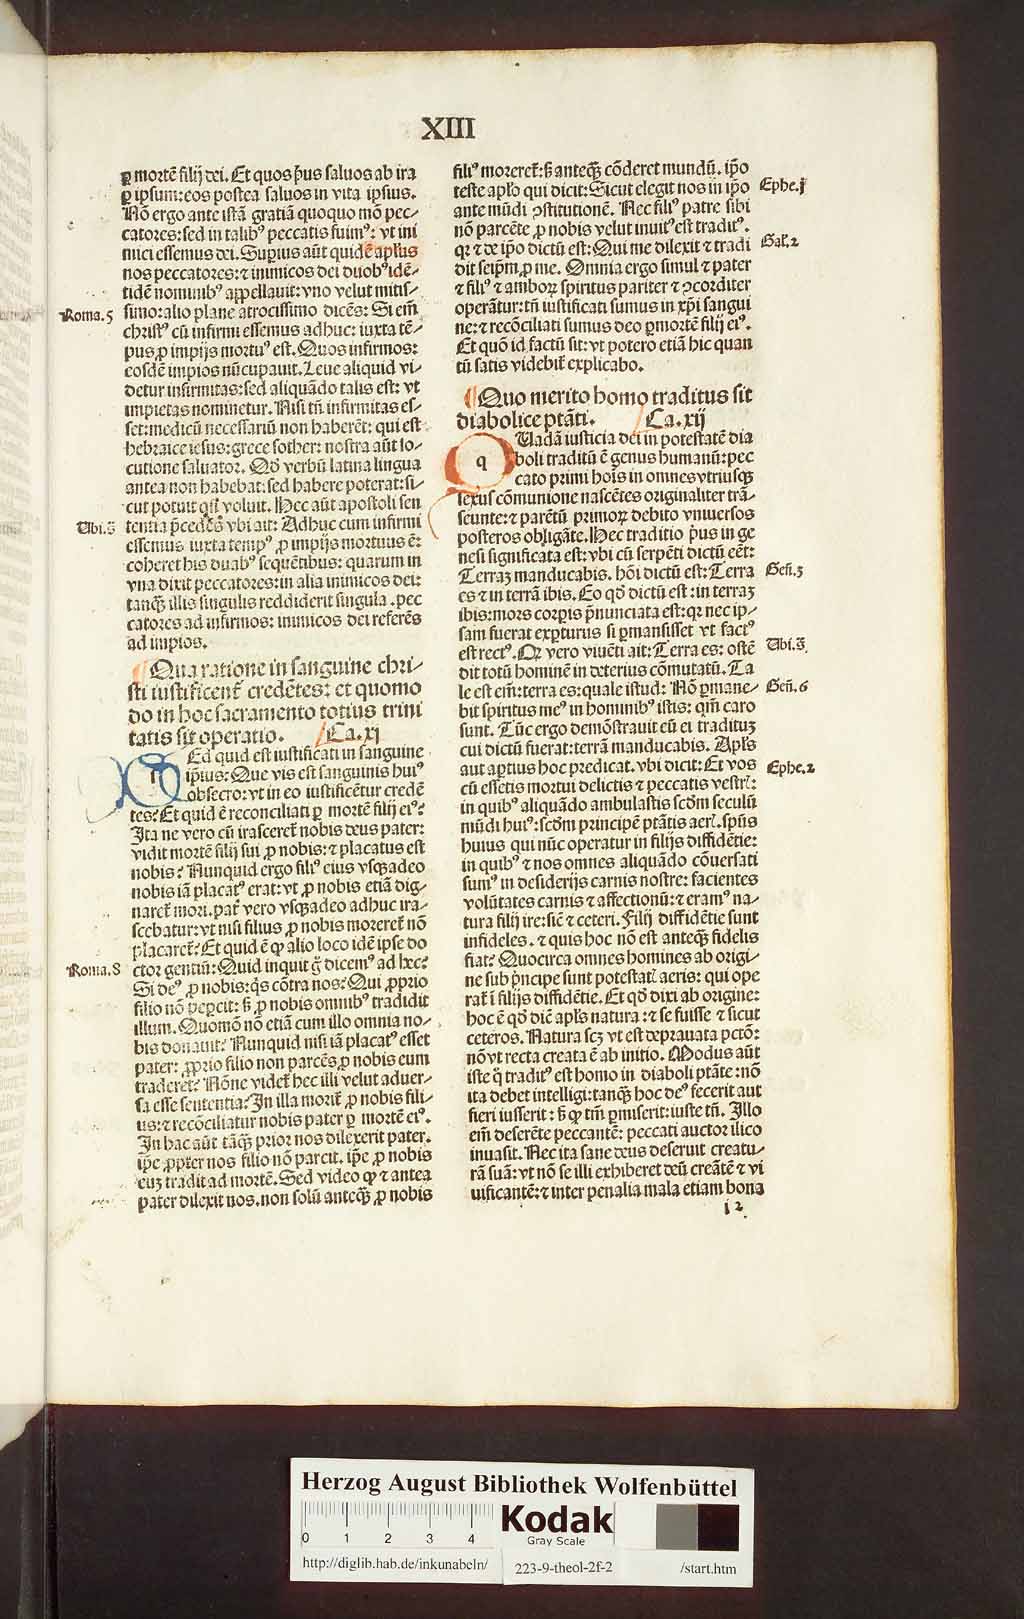 XIII
ꝑ mortē filij dei. Et quos p̄us saluos ab ira
ꝑ ipsum: eos postea saluos in vita ipsius.
Nō ergo ante istā gratiā quoquo mō pec-
catores: sed in talibꝰ peccatis fuimꝰ: vt ini
mici essemus dei. Superius aūt quidē apl̄us
nos peccatores: ⁊ inimicos dei duobꝰ idē-
tidē nominibꝰ appellauit: vno velut mitis-
Roma.5
simo: alio plane atrocissimo dicēs: Si em̄
christꝰ cū infirmi essemus adhuc: iuxta tē-
pus ꝓ impijs mortuꝰ est. Quos infirmos:
eosdē impios nūcupauit. Leue aliquid vi-
detur infirmitas: sed aliquādo talis est: vt
impietas nominetur. Nisi tn̄ infirmitas es-
set: medicū necessariū non haberēt: qui est
hebraice iesus: grece sother: nostra aūt lo-
cutione saluator. Qd̄ verbū latina lingua
antea non habebat: sed habere poterat: si-
cut potuit qn̄ voluit. Hec aūt apostoli sen
Ubi.s̄
tentia p̄cedēs vbi ait: Adhuc cum infirmi
essemus iuxta tempꝰ ꝓ impijs mortuus ē:
coheret his duabꝰ sequētibus: quarum in
vna dixit peccatores: in alia inimicos dei:
tanqꝫ illis singulis reddiderit singula. pec
catores ad infirmos: inimicos dei referēs
ad impios.
Qua ratione in sanguine chri-
sti iustificent᷑ credētes: et quomo
do in hoc sacramento totius trini
tatis sit operatio. Ca.xi
Sed quid est iustificati in sanguine
ipsius: Que vis est sanguinis huiꝰ
obsecro: vt in eo iustificētur credē
tes? Et quid ē reconciliati ꝑ mortē filij eiꝰ?
Ita ne vero cū irasceret᷑ nobis deus pater:
vidit mortē filij sui ꝓ nobis: ⁊ placatus est
nobis? Nunquid ergo filiꝰ eius vsqꝫadeo
nobis iā placatꝰ erat: vt ꝓ nobis etiā dig-
naret᷑ mori. pat᷑ vero vsqꝫadeo adhuc ira-
scebatur: vt nisi filius ꝓ nobis moreret᷑ nō
placaret᷑? Et quid ē ꝙ alio loco idē ipse do
Roma.8
ctor gentiū: Quid inquit g̊ dicemꝰ ad hec?
Si deꝰ ꝓ nobis: q̄s cōtra nos? Qui ꝓprio
filio nō peꝑcit: sꝫ ꝓ nobis omnibꝰ tradidit
illum. Quomō nō etiā cum illo omnia no-
bis donauit? Nunquid nisi iā placatꝰ esset
pater: ꝓprio filio non parcēs ꝓ nobis eum
traderet? Nōne videt᷑ hec illi velut aduer-
sa esse sententia? In illa morit᷑ ꝓ nobis fili-
us: ⁊ recōciliatur nobis pater ꝑ mortē eiꝰ.
In hac aūt tāqꝫ prior nos dilexerit pater.
ip̄e ꝓpter nos filio nō parcit. ip̄e ꝓ nobis
euꝫ tradit ad mortē. Sed video ꝙ ⁊ antea
pater dilexit nos. non solū anteqꝫ ꝓ nobis
filiꝰ moreret᷑: sꝫ anteqꝫ cōderet mundū. ip̄o
teste aplo qui dicit: Sicut elegit nos in ip̄o
Ephe.j
ante mūdi ꝯstitutionē. Nec filiꝰ patre sibi
nō parcēte ꝓ nobis velut inuitꝰ est traditꝰ.
qꝛ ⁊ de ip̄o dictū est: Qui me dilexit ⁊ tradi
Gal.2
dit seip̄m ꝓ me. Omnia ergo simul ⁊ pater
⁊ filiꝰ ⁊ amboꝝ spiritus pariter ⁊ ꝯcorditer
operātur: tn̄ iustificati sumus in xp̄i sangui
ne: ⁊ recōciliati sumus deo ꝑ mortē filij eiꝰ.
Et quō id factū sit: vt potero etiā hic quan
tū satis videbit᷑ explicabo.
Quo merito homo traditus sit
diabolice ptāti. Ca.xij
q
Uadā iusticia dei in potestatē dia
boli traditū ē genus humanū: pec
cato primi hoīs in omnes vtriusqꝫ
sexus cōmunione nascētes originaliter trā-
seunte: ⁊ parētū primoꝝ debito vniuersos
posteros obligāte. Hec traditio p̄us in ge
nesi significata est: vbi cū serpēti dictū eēt:
Terraꝫ manducabis. hōi dictū est: Terra
Geñ.3
es ⁊ in terrā ibis. Eo qd̄ dictū est: in terraꝫ
ibis: mors corꝑis p̄nunciata est: qꝛ nec ip-
sam fuerat exꝑturus si ꝑmansisset vt factꝰ
est rectꝰ. Qꝙ vero viuēti ait: Terra es: ostē
Ubi.s̄.
dit totū hominē in deterius cōmutatū. Ta
le est em̄: terra es: quale istud: Nō ꝑmane-
Geñ.6
bit spiritus meꝰ in hominibꝰ istis: qm̄ caro
sunt. Tūc ergo demōstrauit eū ei traditum
cui dictū fuerat: terrā manducabis. Apl̄s
aut aꝑtius hoc predicat. vbi dicit: Et vos
Ephe.2
cū essetis mortui delictis ⁊ peccatis vestris:
in quibꝰ aliquādo ambulastis scdm̄ seculū
mūdi huiꝰ: scdm̄ principē ptātis aeris. sp̄us
huius qui nūc operatur in filijs diffidētie:
in quibꝰ ⁊ nos omnes aliquādo cōuersati
sumꝰ in desiderijs carnis nostre: facientes
volūtates carnis ⁊ affectionū: ⁊ eramꝰ na-
tura filij ire: sic̄ ⁊ ceteri. Filij diffidētie sunt
infideles. ⁊ quis hoc nō est anteqꝫ fidelis
fiat? Quocirca omnes homines ab origi-
ne sub p̄ncipe sunt potestatis aeris: qui ope
rat᷑ ī filijs diffidētie. Et qd̄ dixi ab origine:
hoc ē qd̄ dicit apl̄s natura: ⁊ se fuisse ⁊ sicut
ceteros. Natura scꝫ vt est deprauata pctō:
nō vt recta creata ē ab initio. Modus aūt
iste q̊ traditꝰ est homo in diaboli ptāte: nō
ita debet intelligi: tanqꝫ hoc deꝰ fecerit aut
fieri iusserit: sꝫ ꝙ tm̄ ꝑmiserit: iuste tn̄. Illo
em̄ deserēte peccantē: peccati auctor ilico
inuasit. Nec ita sane deus deseruit creatu-
rā suā: vt nō se illi exhiberet deū creātē ⁊ vi
uificantē: ⁊ inter penalia mala etiam bona
l 2
Herzog August Bibliothek Wolfenbüttel
0 1 2 3 4
Kodak
Gray Scale
http://diglib.hab.de/inkunabeln/
223-9-theol-2f-2
/start.htm